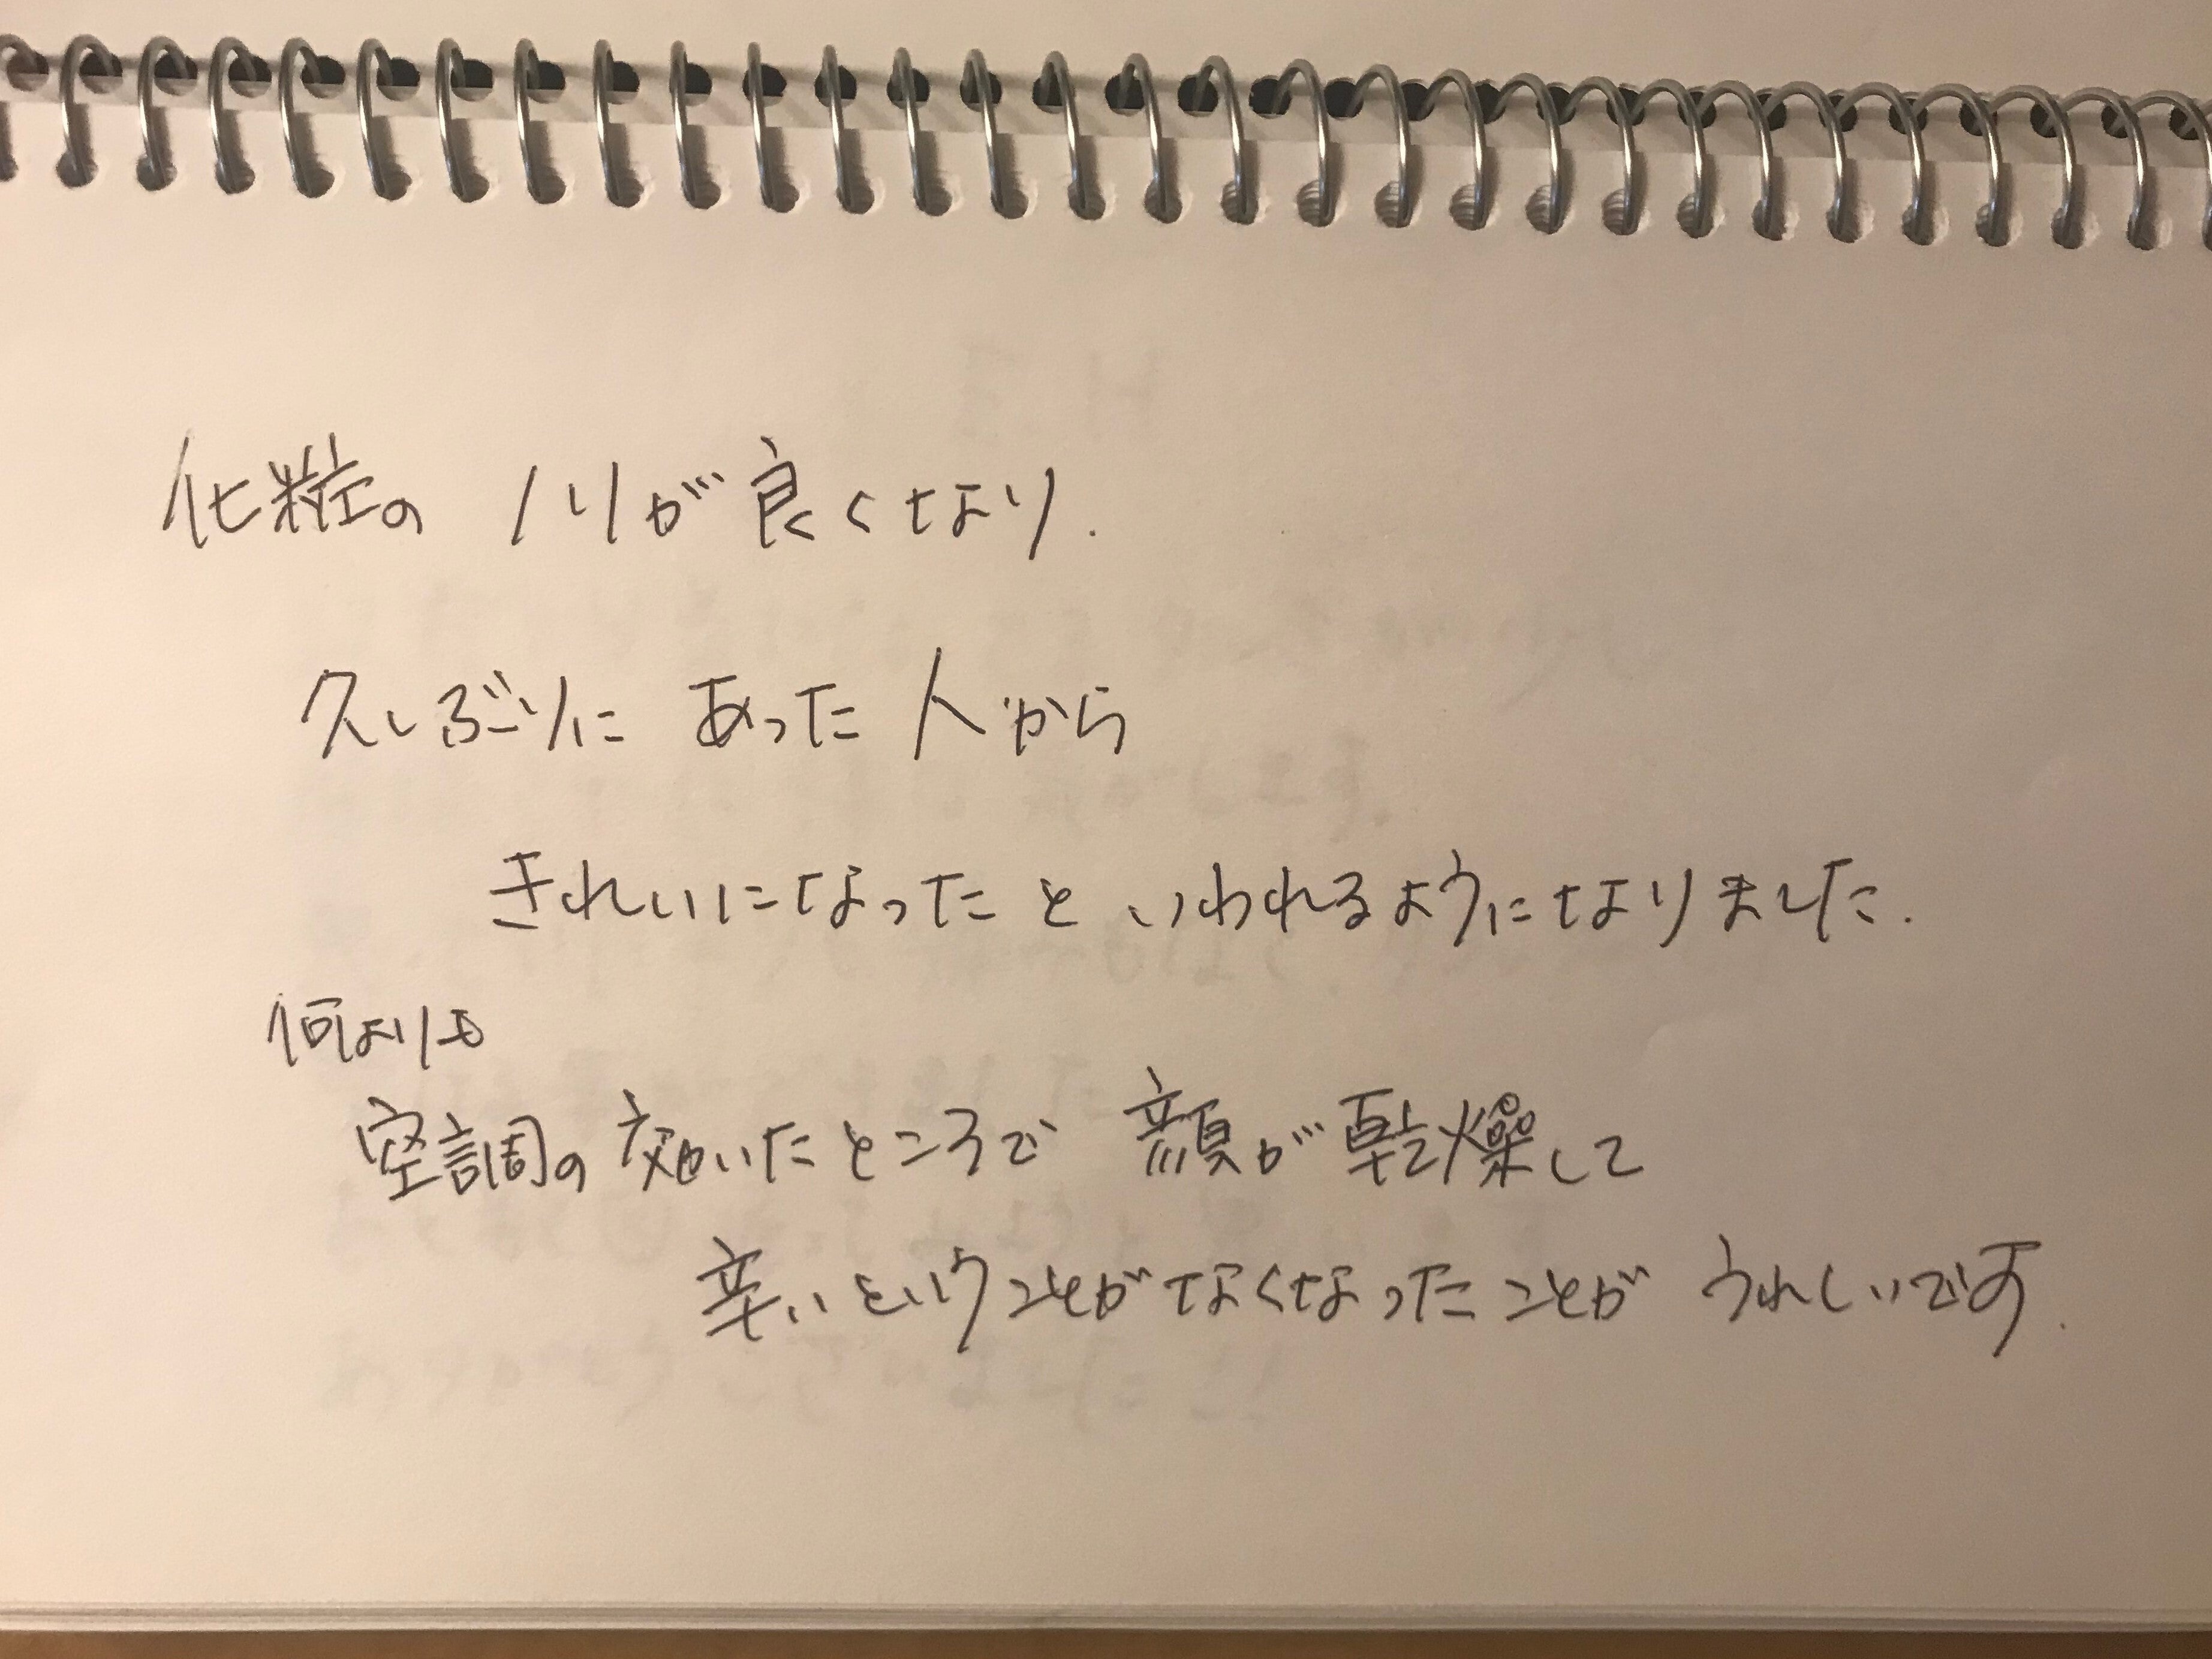 化粧の ノリが良くなり.
久しぶりに あった人から
きれいになったと いわれるようになりました.
何よりも
空調の効いたところで 顔が乾燥して
辛いということがなくなったことが うれしいです.